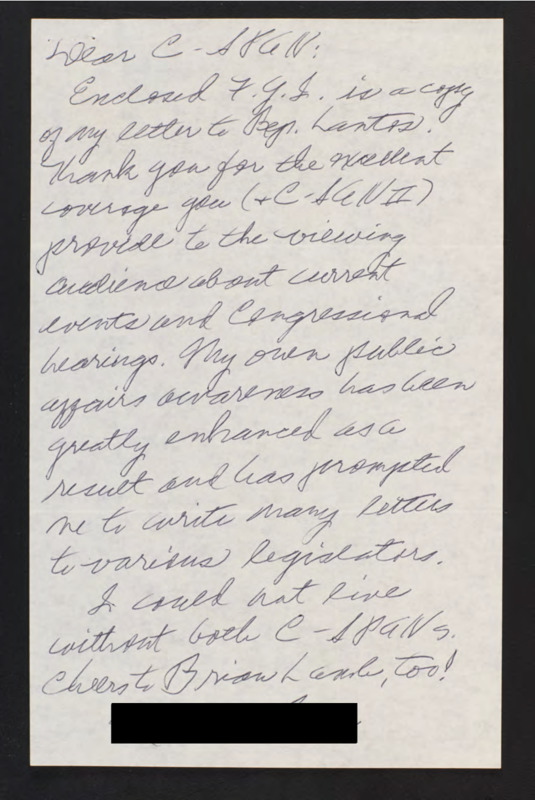 Dear C-SPAN:
Enclosed F.Y.I. is a copy
of my letter to Rep. Lantos.
Thank you for the excellent
coverage you (+C-SPAN II)
provide to the viewing
audience about current
events and Congressional
hearings. My own public
affairs awareness has been
greatly enhanced as a
result and has prompted
me to write many letters
to various legislators.
I could not live
without both C-SPANs.
Cheers to Brian Lamb, too!